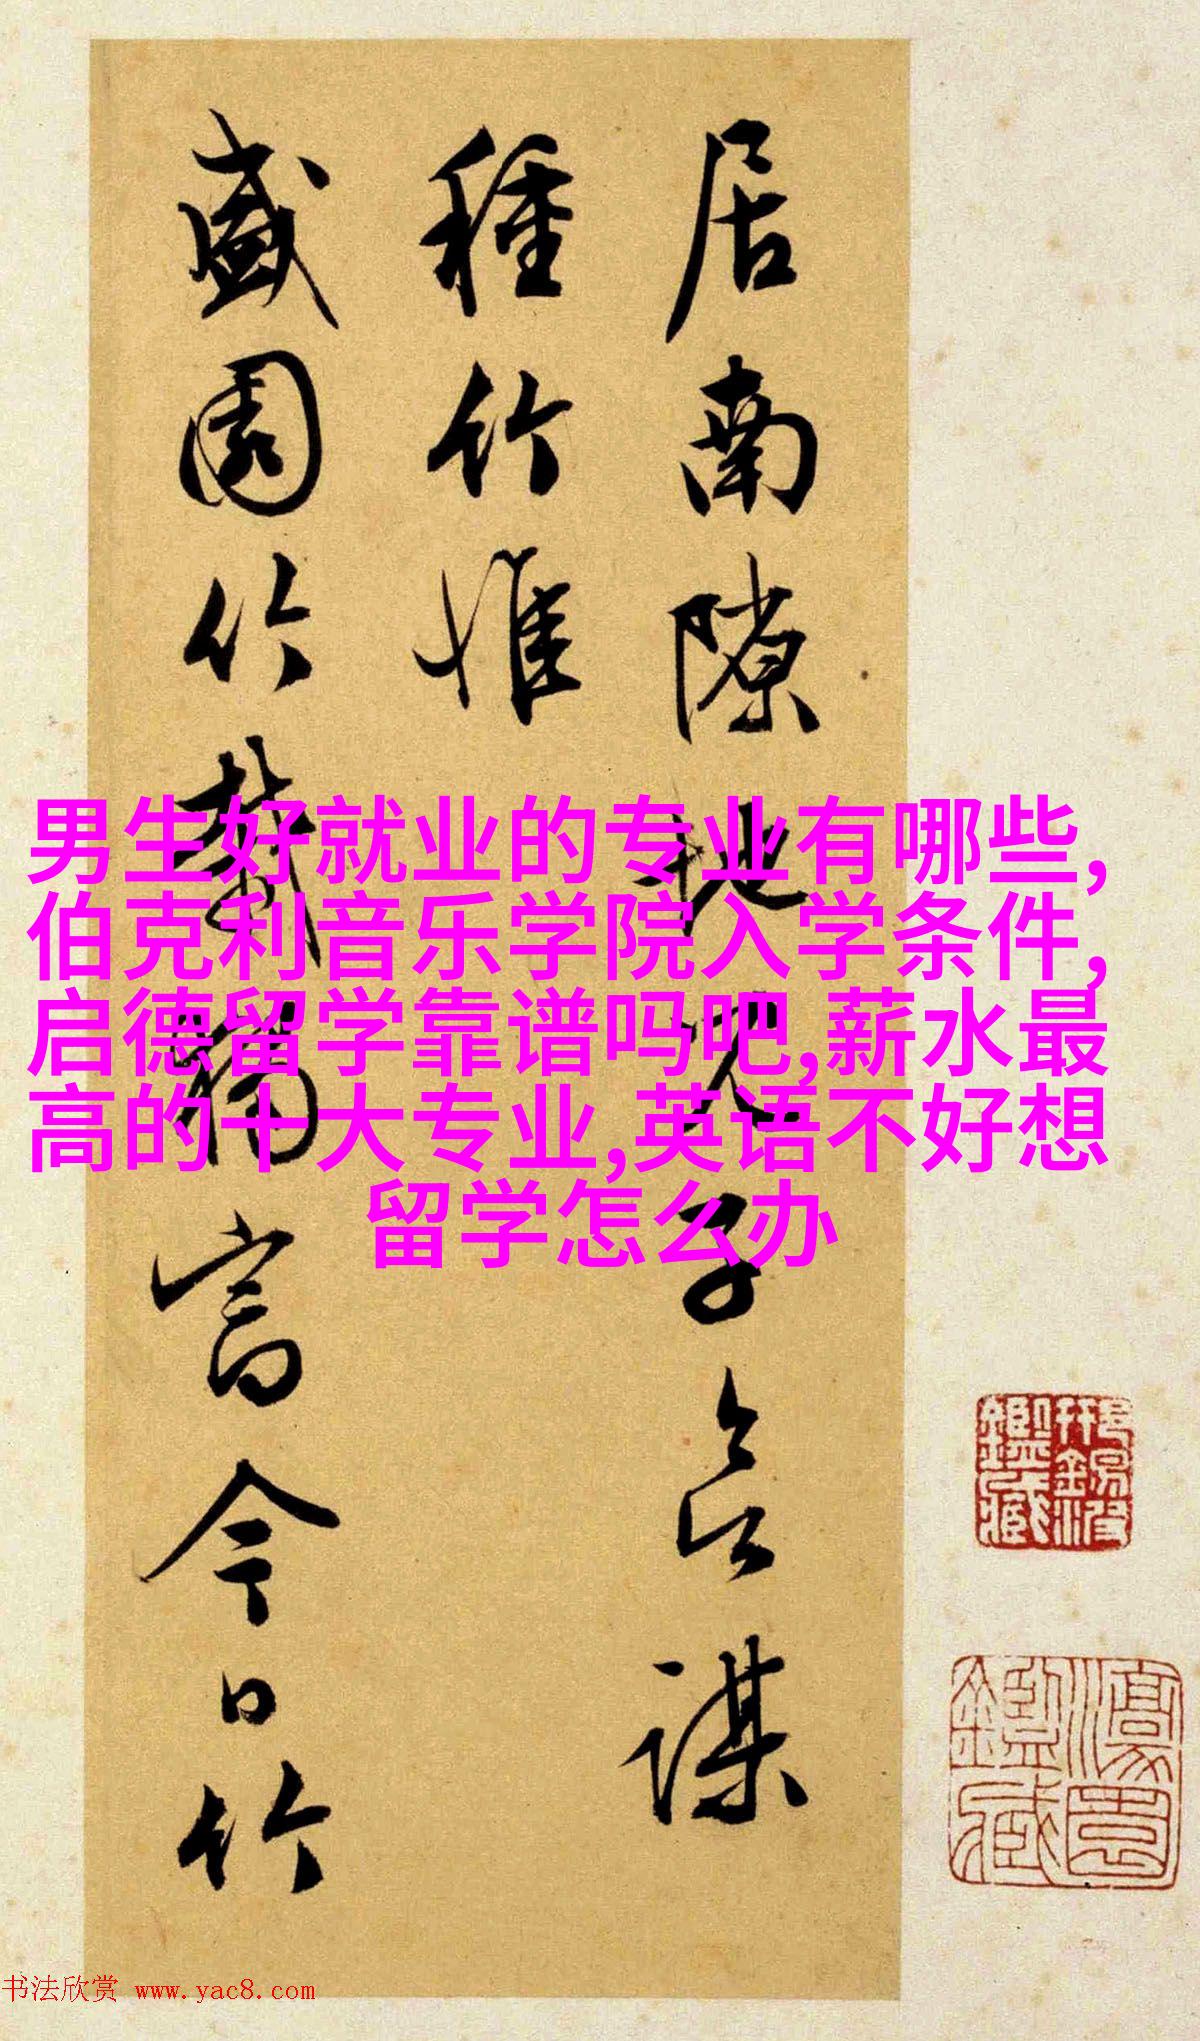 居南隙地况子会谋
種竹惟
盛園竹栽稱富今日竹
男生好就业的专业有哪些,
伯克利音乐学院入学条件,
启德留学靠谱吗吧,薪水最
高的十大专业,英语不好想
留学怎么办
书法欣赏 www.yac8.com